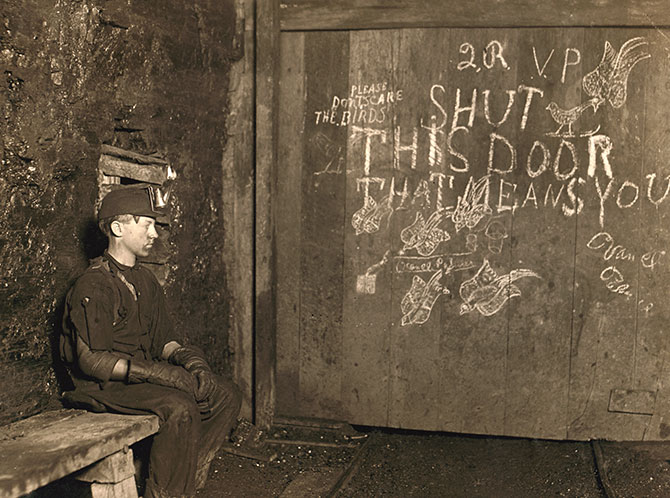 2.R V.P
PLEASE
DON'T SCARE
THE.BIRDS
SHUT
THIS DOOR
THAT MEANS YOU